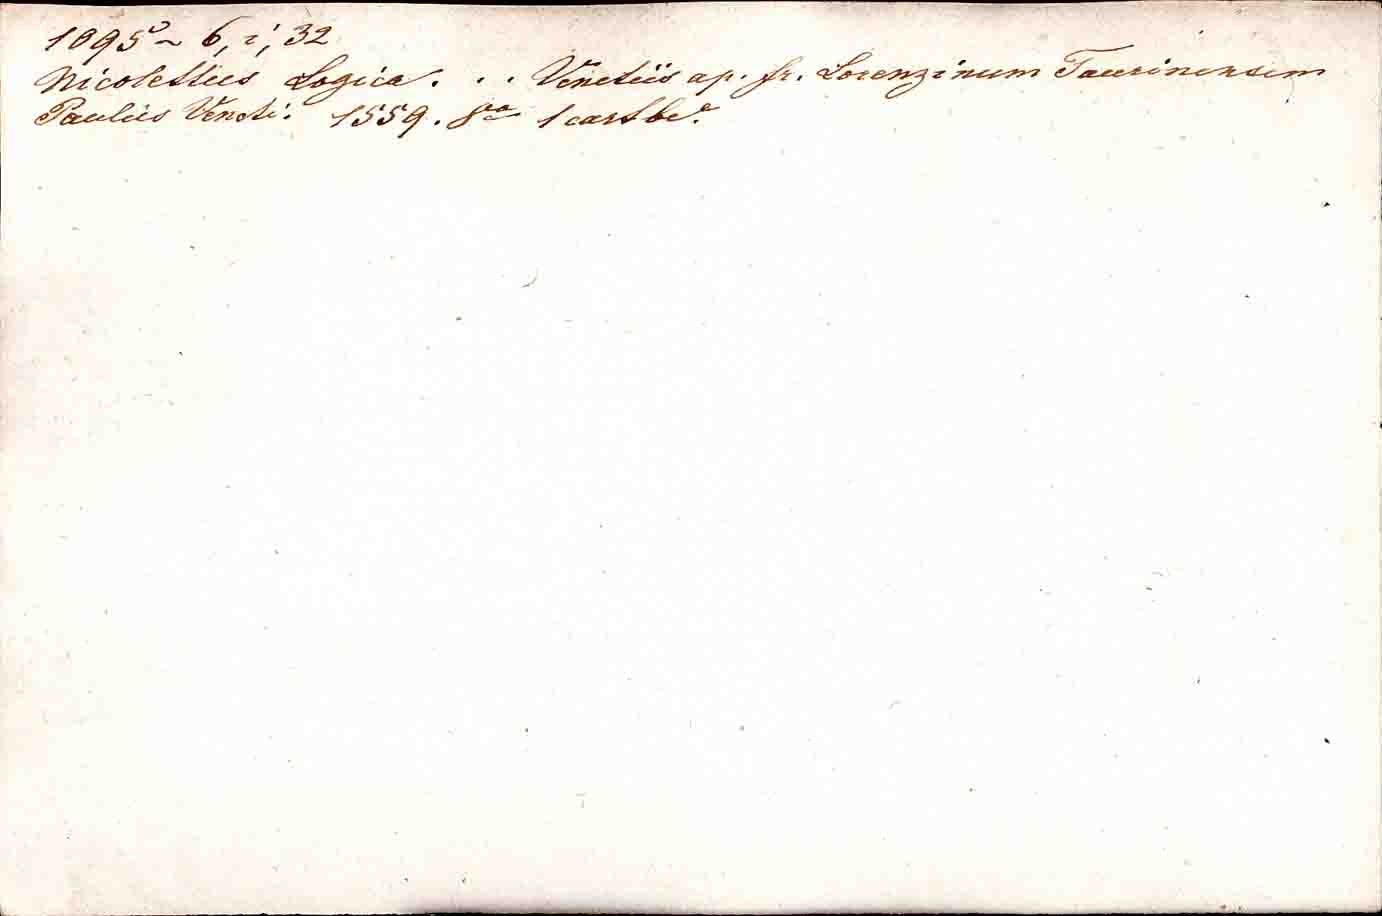 1095 ~ 6, i, 32
Nicolettus Logica. . . Venetiis ap. fr. Lorenzinum Taurinensem
Paulus Veneti. 1559. 8° 1 cart be.